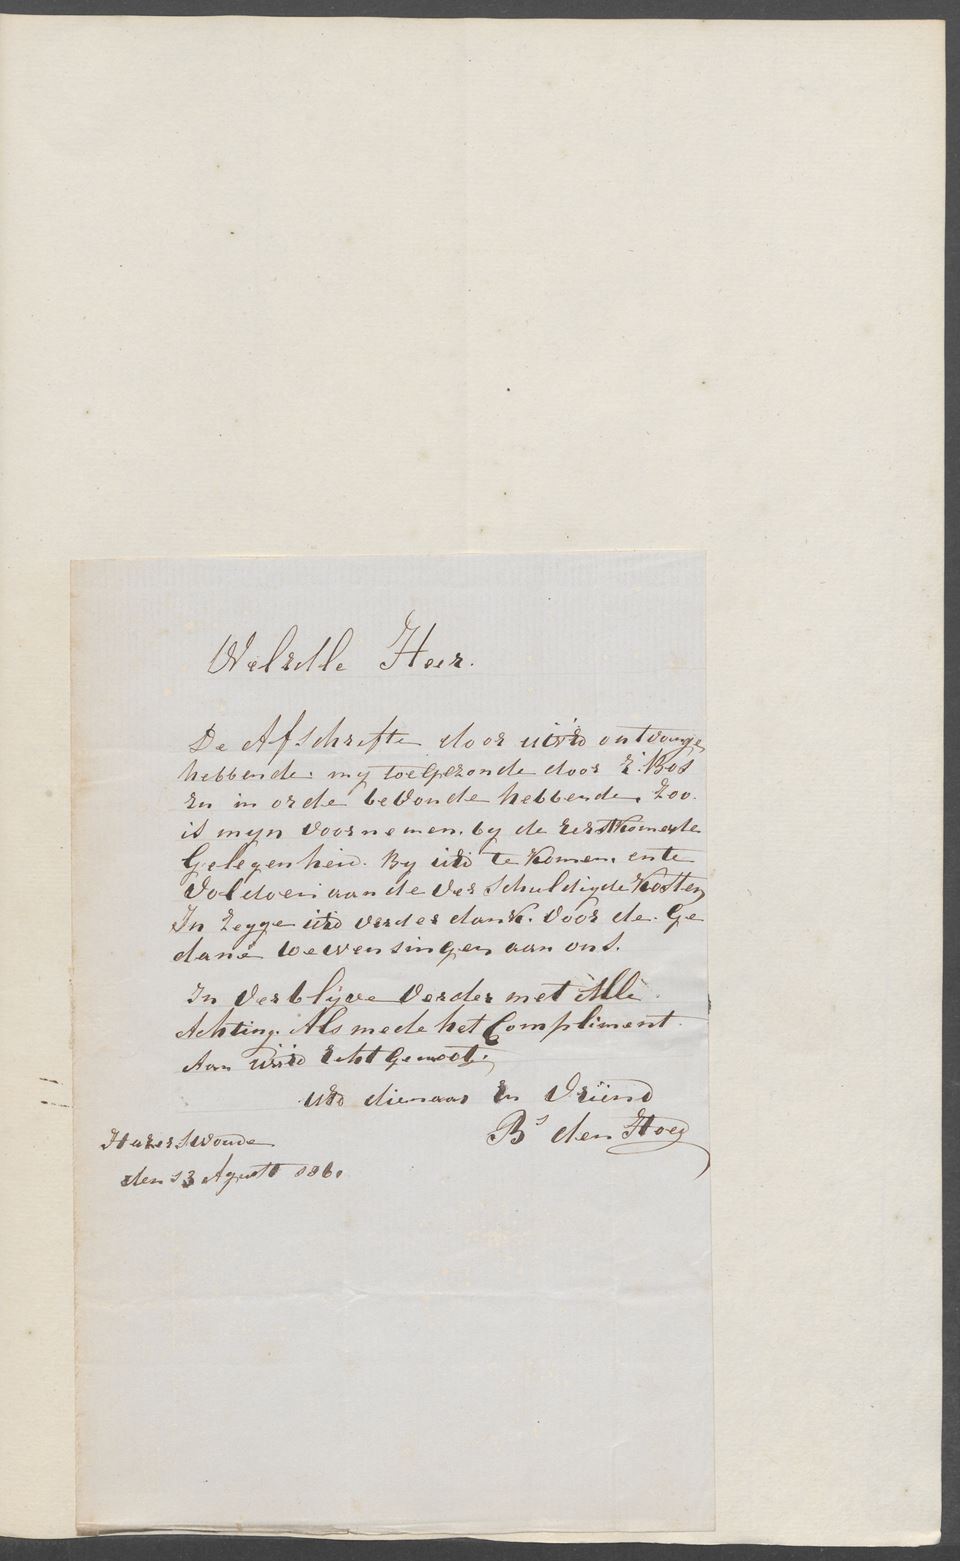 WelEdle Heer.
De Afschrifte door uwEd ontvange
hebbende. my toegezonde door E. Bos
En in orde bevonde hebbende. zoo.
is myn voornemen. by de Eerstkomeste
Gelegenheid. By uEd te komen. en te
voldoen aan de verschuldigde kosten
En zegge uEd verder dank. voor de. Ge
dane toewensingen aan ons.
En verblijve verder met Alle.
Achting. Als mede het Compliment.
Aan uEd Echt Genoot.
uEd dienaar En Vriend
Bs den Hoed
Hazerswoude
den 13 Agustt 1860